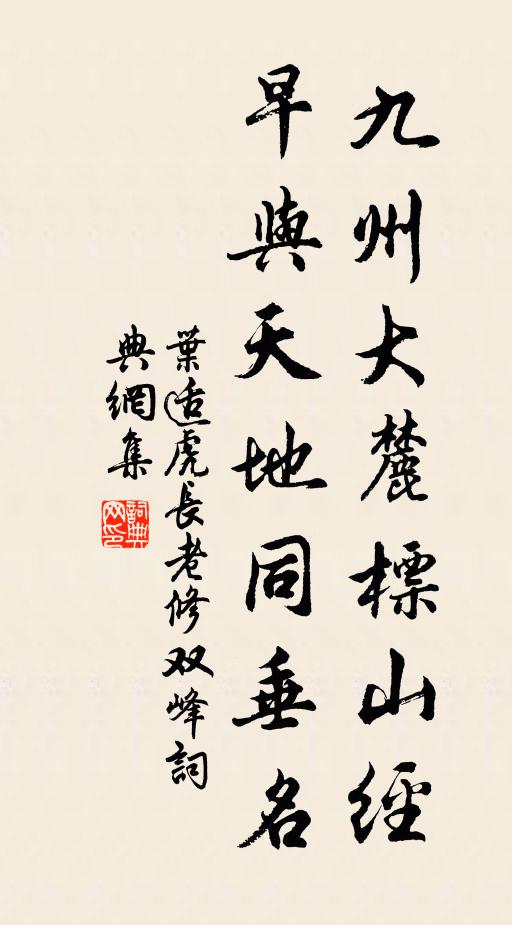 九州大麓標山經
早與天地同垂名
葉适虎長老修双峰詞
典網集
詞典网印